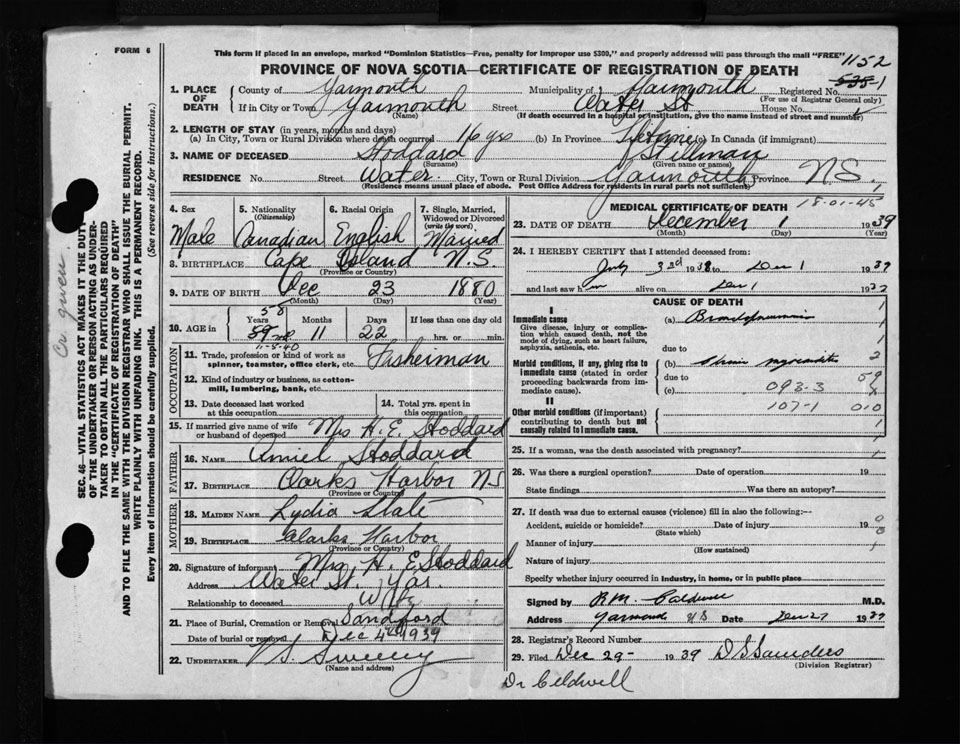 FORM 6
This form if placed in an envelope, marked "Dominion Statistics—Free, penalty for improper use $300," and properly addressed will pass through the mail "FREE"
1152
PROVINCE OF NOVA SCOTIA—CERTIFICATE OF REGISTRATION OF DEATH
535-1
1. PLACE OF DEATH
County of Yarmouth Municipality of Yarmouth Registered No.
(For use of Registrar General only)
If in City or Town Yarmouth Street Water St House No.
(Name) (If death occurred in a hospital or institution, give the name instead of street and number)
2. LENGTH OF STAY (in years, months and days)
(a) In City, Town or Rural Division where death occurred 16 yrs (b) In Province Lifetime (c) In Canada (if immigrant)
3. NAME OF DECEASED Stoddard Stillman
(Surname) (Given name or names)
RESIDENCE No. Street Water City, Town or Rural Division Yarmouth Province N.S.
(Residence means usual place of abode. Post Office Address for residents in rural parts not sufficient)
4. Sex Male
5. Nationality (Citizenship) Canadian
6. Racial Origin English
7. Single, Married, Widowed or Divorced (write the word) Married
8. BIRTHPLACE Cape Island N.S
(Province or Country)
9. DATE OF BIRTH Dec 23 1880
(Month) (Day) (Year)
10. AGE in Years Months Days If less than one day old
58
59 11 22 hrs. or min.
11-5-40
OCCUPATION
11. Trade, profession or kind of work as spinner, teamster, office clerk, etc. Fisherman
12. Kind of industry or business, as cotton-mill, lumbering, bank, etc.
13. Date deceased last worked at this occupation
14. Total yrs. spent in this occupation
15. If married give name of wife or husband of deceased Mrs H. E. Stoddard
FATHER
16. NAME Stoddard
17. BIRTHPLACE Clarks Harbor NS
(Province or Country)
MOTHER
18. MAIDEN NAME Lydia Slate
19. BIRTHPLACE Clarks Harbor
(Province or Country)
20. Signature of informant Mrs H. E Stoddard
Address Water St. Yar.
Relationship to deceased Wife
21. Place of Burial, Cremation or Removal Sandford
Date of burial or removal Dec 4th 1939
22. UNDERTAKER V S Sweeny
(Name and address)
MEDICAL CERTIFICATE OF DEATH
18-01-45
23. DATE OF DEATH December 1 1939
(Month) (Day) (Year)
24. I HEREBY CERTIFY that I attended deceased from:
July 3rd 1938 to Dec 1 1939
and last saw him alive on Dec 1 1939
CAUSE OF DEATH
I
Immediate cause
Give disease, injury or complication which caused death, not the mode of dying, such as heart failure, asphyxia, asthenia, etc.
(a) Bronchopneumonia
due to
Morbid conditions, if any, giving rise to immediate cause (stated in order proceeding backwards from immediate cause).
(b) Chronic myocarditis
due to
(c) 093-3
II
107-1 010
Other morbid conditions (if important) contributing to death but not causally related to immediate cause.
25. If a woman, was the death associated with pregnancy?
26. Was there a surgical operation? Date of operation 19
State findings Was there an autopsy?
27. If death was due to external causes (violence) fill in also the following:—
Accident, suicide or homicide? Date of injury 19
(State which)
Manner of injury
(How sustained)
Nature of injury
Specify whether injury occurred in industry, in home, or in public place
Signed by B.M. Caldwell M.D.
Address Yarmouth N S Date Dec 27 1939
28. Registrar's Record Number
29. Filed Dec 29- 1939 D S Saunders
(Division Registrar)
Dr Celdwell
SEC. 46—VITAL STATISTICS ACT MAKES IT THE DUTY OF THE UNDERTAKER OR PERSON ACTING AS UNDERTAKER TO OBTAIN ALL THE PARTICULARS REQUIRED IN THE "CERTIFICATE OF REGISTRATION OF DEATH" AND TO FILE THE SAME WITH THE DIVISION REGISTRAR WHO SHALL ISSUE THE BURIAL PERMIT.
WRITE PLAINLY WITH UNFADING INK. THIS IS A PERMANENT RECORD.
Every item of information should be carefully supplied. (See reverse side for instructions.)